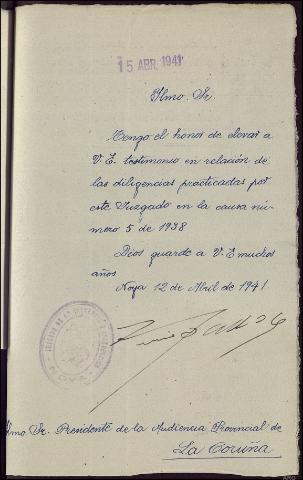 15 ABR. 1941
Ilmo. Sr.
Tengo el honor de elevar a
V. E. testimonio en relación de
las diligencias practicadas por
este Juzgado en la causa nú-
mero 5 de 1938
Dios guarde a V. E muchos
años
Noya 12 de Abril de 1941
Ilmo Sr. Presidente de la Audiencia Provincial de
La Coruña